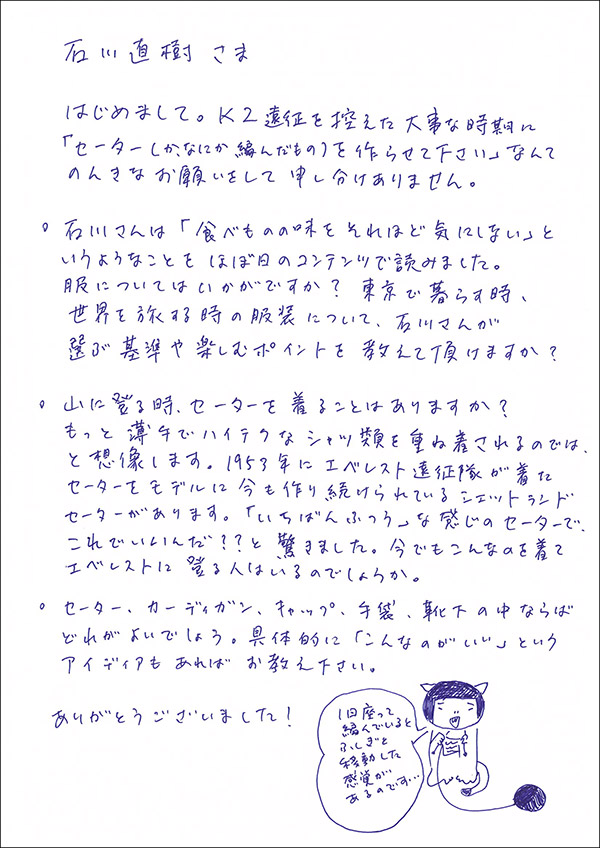 石川直樹さま
はじめまして。K2遠征を控えた大事な時期に
「セーター(か、なにか編んだもの)を作らせて下さい」なんて
のんきなお願いをして申し分けありません。
。石川さんは「食べものの味をそれほど気にしない」と
いうようなことをほぼ日のコンテンツで読みました。
服についてはいかがですか？東京で暮らす時、
世界を旅する時の服装について、石川さんが
選ぶ基準や楽しむポイントを教えて頂けますか？
。山に登る時、セーターを着ることはありますか？
もっと薄手でハイテクなシャツ類を重ね着されるのでは、
と想像します。1953年にエベレスト遠征隊が着た
セーターをモデルに今も作り続けられているシェットランド
セーターがあります。「いちばんふつう」な感じのセーターで、
これでいいんだ??と驚きました。今でもこんなのを着て
エベレストに登る人はいるのでしょうか。
。セーター、カーディガン、キャップ、手袋、靴下の中ならば
どれがよいでしょう。具体的に「こんなのがいい」という
アイディアもあればお教え下さい。
ありがとうございました！
1日座って
編んでいると
ふしぎと
移動した
感覚が
あるのです…